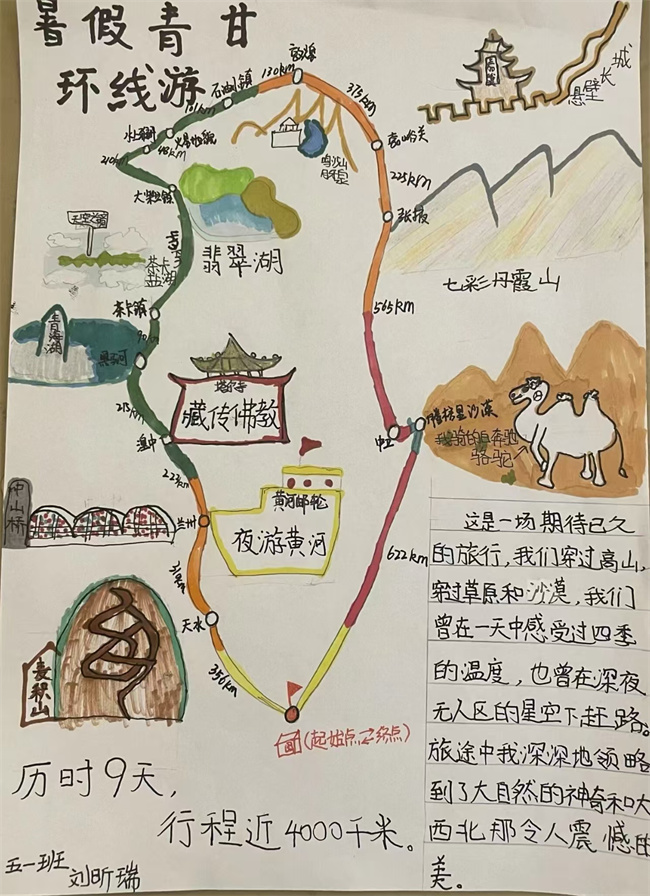 暑假青甘
环线游
敦煌
130km
石油小镇
101km
水上雅丹
210km
48km
大柴旦镇
翡翠湖
天空之镜
茶卡
盐湖
茶卡镇
青海湖
213km
湟中
223km
塔尔寺
藏传佛教
黄河邮轮
夜游黄河
中山桥
兰州
天水
356km
麦积山
(起始点⇄终点)
鸣沙山
月牙泉
375km
嘉峪关
225km
张掖
565km
悬壁长城
七彩丹霞山
中卫
腾格里沙漠
我骑的是奔驰
骆驼
622km
这是一场期待已久
的旅行,我们穿过高山,
穿过草原和沙漠,我们
曾在一天中感受过四季
的温度,也曾在深夜
无人区的星空下赶路。
旅途中我深深地领略
到了大自然的神奇和大
西北那令人震憾的
美。
历时9天,
行程近4000千米。
五一班
刘昕瑞